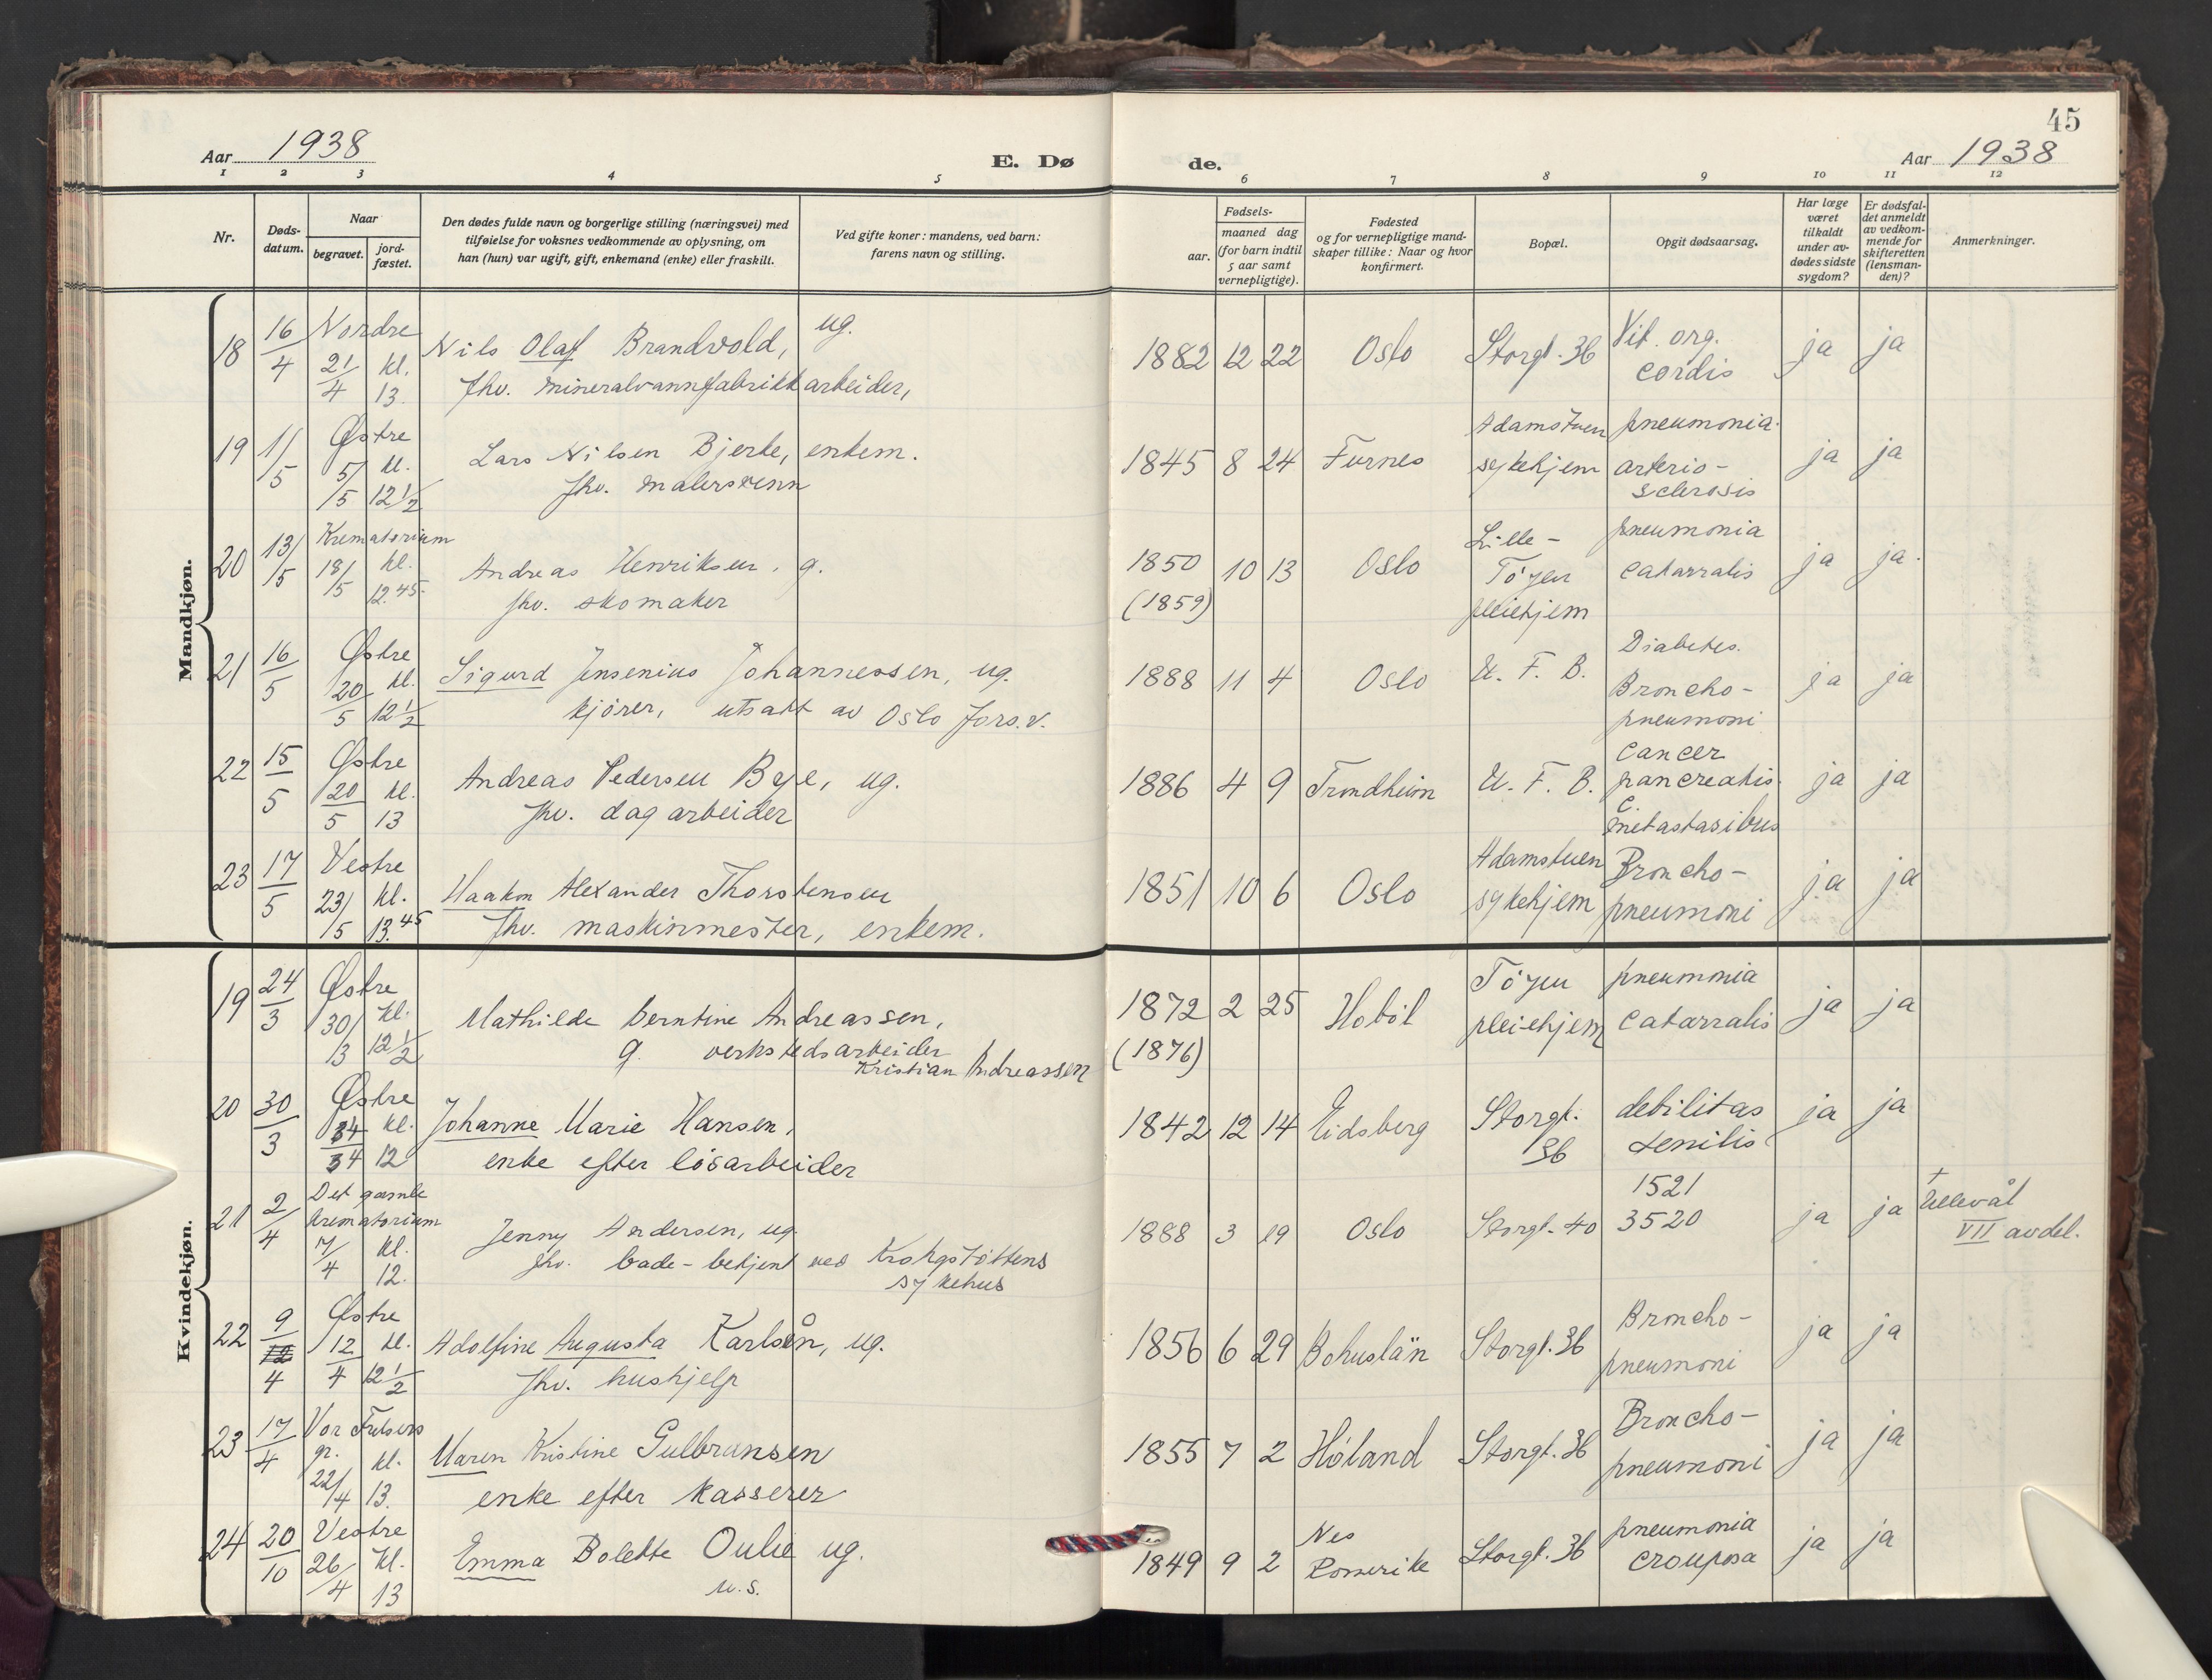 45
Aar 1938
E. Dø
de.
Aar 1938
1 2 3 4 5 6 7 8 9 10 11 12
Nr.
Døds-
datum.
Naar
begravet.
jord-
fæstet.
Den dødes fulde navn og borgerlige stilling (næringsvei) med
tilføielse for voksnes vedkommende av oplysning, om
han (hun) var ugift, gift, enkemand (enke) eller fraskilt.
Ved gifte koner: mandens, ved barn:
farens navn og stilling.
Fødsels-
aar.
maaned dag
(for barn indtil
5 aar samt
vernepligtige).
Fødested
og for vernepligtige mand-
skaper tillike: Naar og hvor
konfirmert.
Bopæl.
Opgit dødsaarsag.
Har læge
været
tilkaldt
under av-
dødes sidste
sygdom?
Er dødsfal-
det anmeldt
av vedkom-
mende for
skifteretten
(lensman-
den)?
Anmerkninger.
Mandkjøn.
18 16/4 Nordre 21/4 kl. 13
Nils Olaf Brandvold, ug.
fhv. mineralvannfabrikkarbeider,
1882 12 22 Oslo Storgt. 36
Vit. org.
cordis
ja ja
19 11/5 Østre 5/5 kl. 12 1/2
Lars Nilsen Bjerke, enkem.
fhv. malersvenn
1845 8 24 Furnes
Adamstuen
sykehjem
pneumonia
arterio-
sclerosis
ja ja
20 13/5 Krematorium 18/5 kl. 12.45
Andreas Henriksen, g.
fhv. skomaker
1850
(1859)
10 13 Oslo
Lille-
Töyen
pleiehjem
pneumonia
catarralis
ja ja
21 16/5 Østre 20/5 kl. 12 1/2
Sigurd Jensenius Johannessen, ug.
kjører, utsatt av Oslo fors.v.
1888 11 4 Oslo U. F. B.
Diabetes.
Broncho-
pneumoni
ja ja
22 15/5 Østre 20/5 kl. 13
Andreas Pedersen Bye, ug.
fhv. dagarbeider
1886 4 9 Trondheim U. F. B.
cancer
pancreatis
c.
metastasibus
ja ja
23 17/5 Vestre 23/5 kl. 13.45
Haakon Alexander Thorstensen
fhv. maskinmester, enkem.
1851 10 6 Oslo
Adamstuen
sykehjem
Broncho-
pneumoni
ja ja
Kvindekjøn.
19 24/3 Østre 30/3 kl. 12 1/2
Mathilde Berntine Andreassen,
g. verkstedsarbeider
Kristian Andreassen
1872
(1876)
2 25 Hobøl
Töyen
pleiehjem
pneumonia
catarralis
ja ja
20 30/3 Østre 4/4 kl. 12
Johanne Marie Hansen,
enke efter løsarbeider
1842 12 14 Eidsberg
Storgt.
36
debilitas
senilis
ja ja
21 2/4 Det gamle
krematorium 7/4 kl. 12.
Jenny Andersen, ug.
fhv. bade-betjent ved Krohgstøttens
sykehus
1888 3 19 Oslo Storgt. 40
1521
3520
ja ja
+
Ullevål
VII avdel.
22 9/4 Østre 12/4 kl. 12 1/2
Adolfine Augusta Karlsån, ug.
fhv. hushjelp
1856 6 29 Bohuslän Storgt. 36
Broncho-
pneumoni
ja ja
23 17/4 Vor Frelsers
gr. 22/4 kl. 13.
Maren Kristine Gulbransen
enke efter kasserer
1855 7 2 Høland Storgt. 36
Broncho-
pneumoni
ja ja
24 20/10 Vestre 26/4 kl. 13
Emma Bolette Oulie ug.
u.s.
1849 9 2
Nes
Romerike
Storgt. 36
pneumonia
crouposa
ja ja